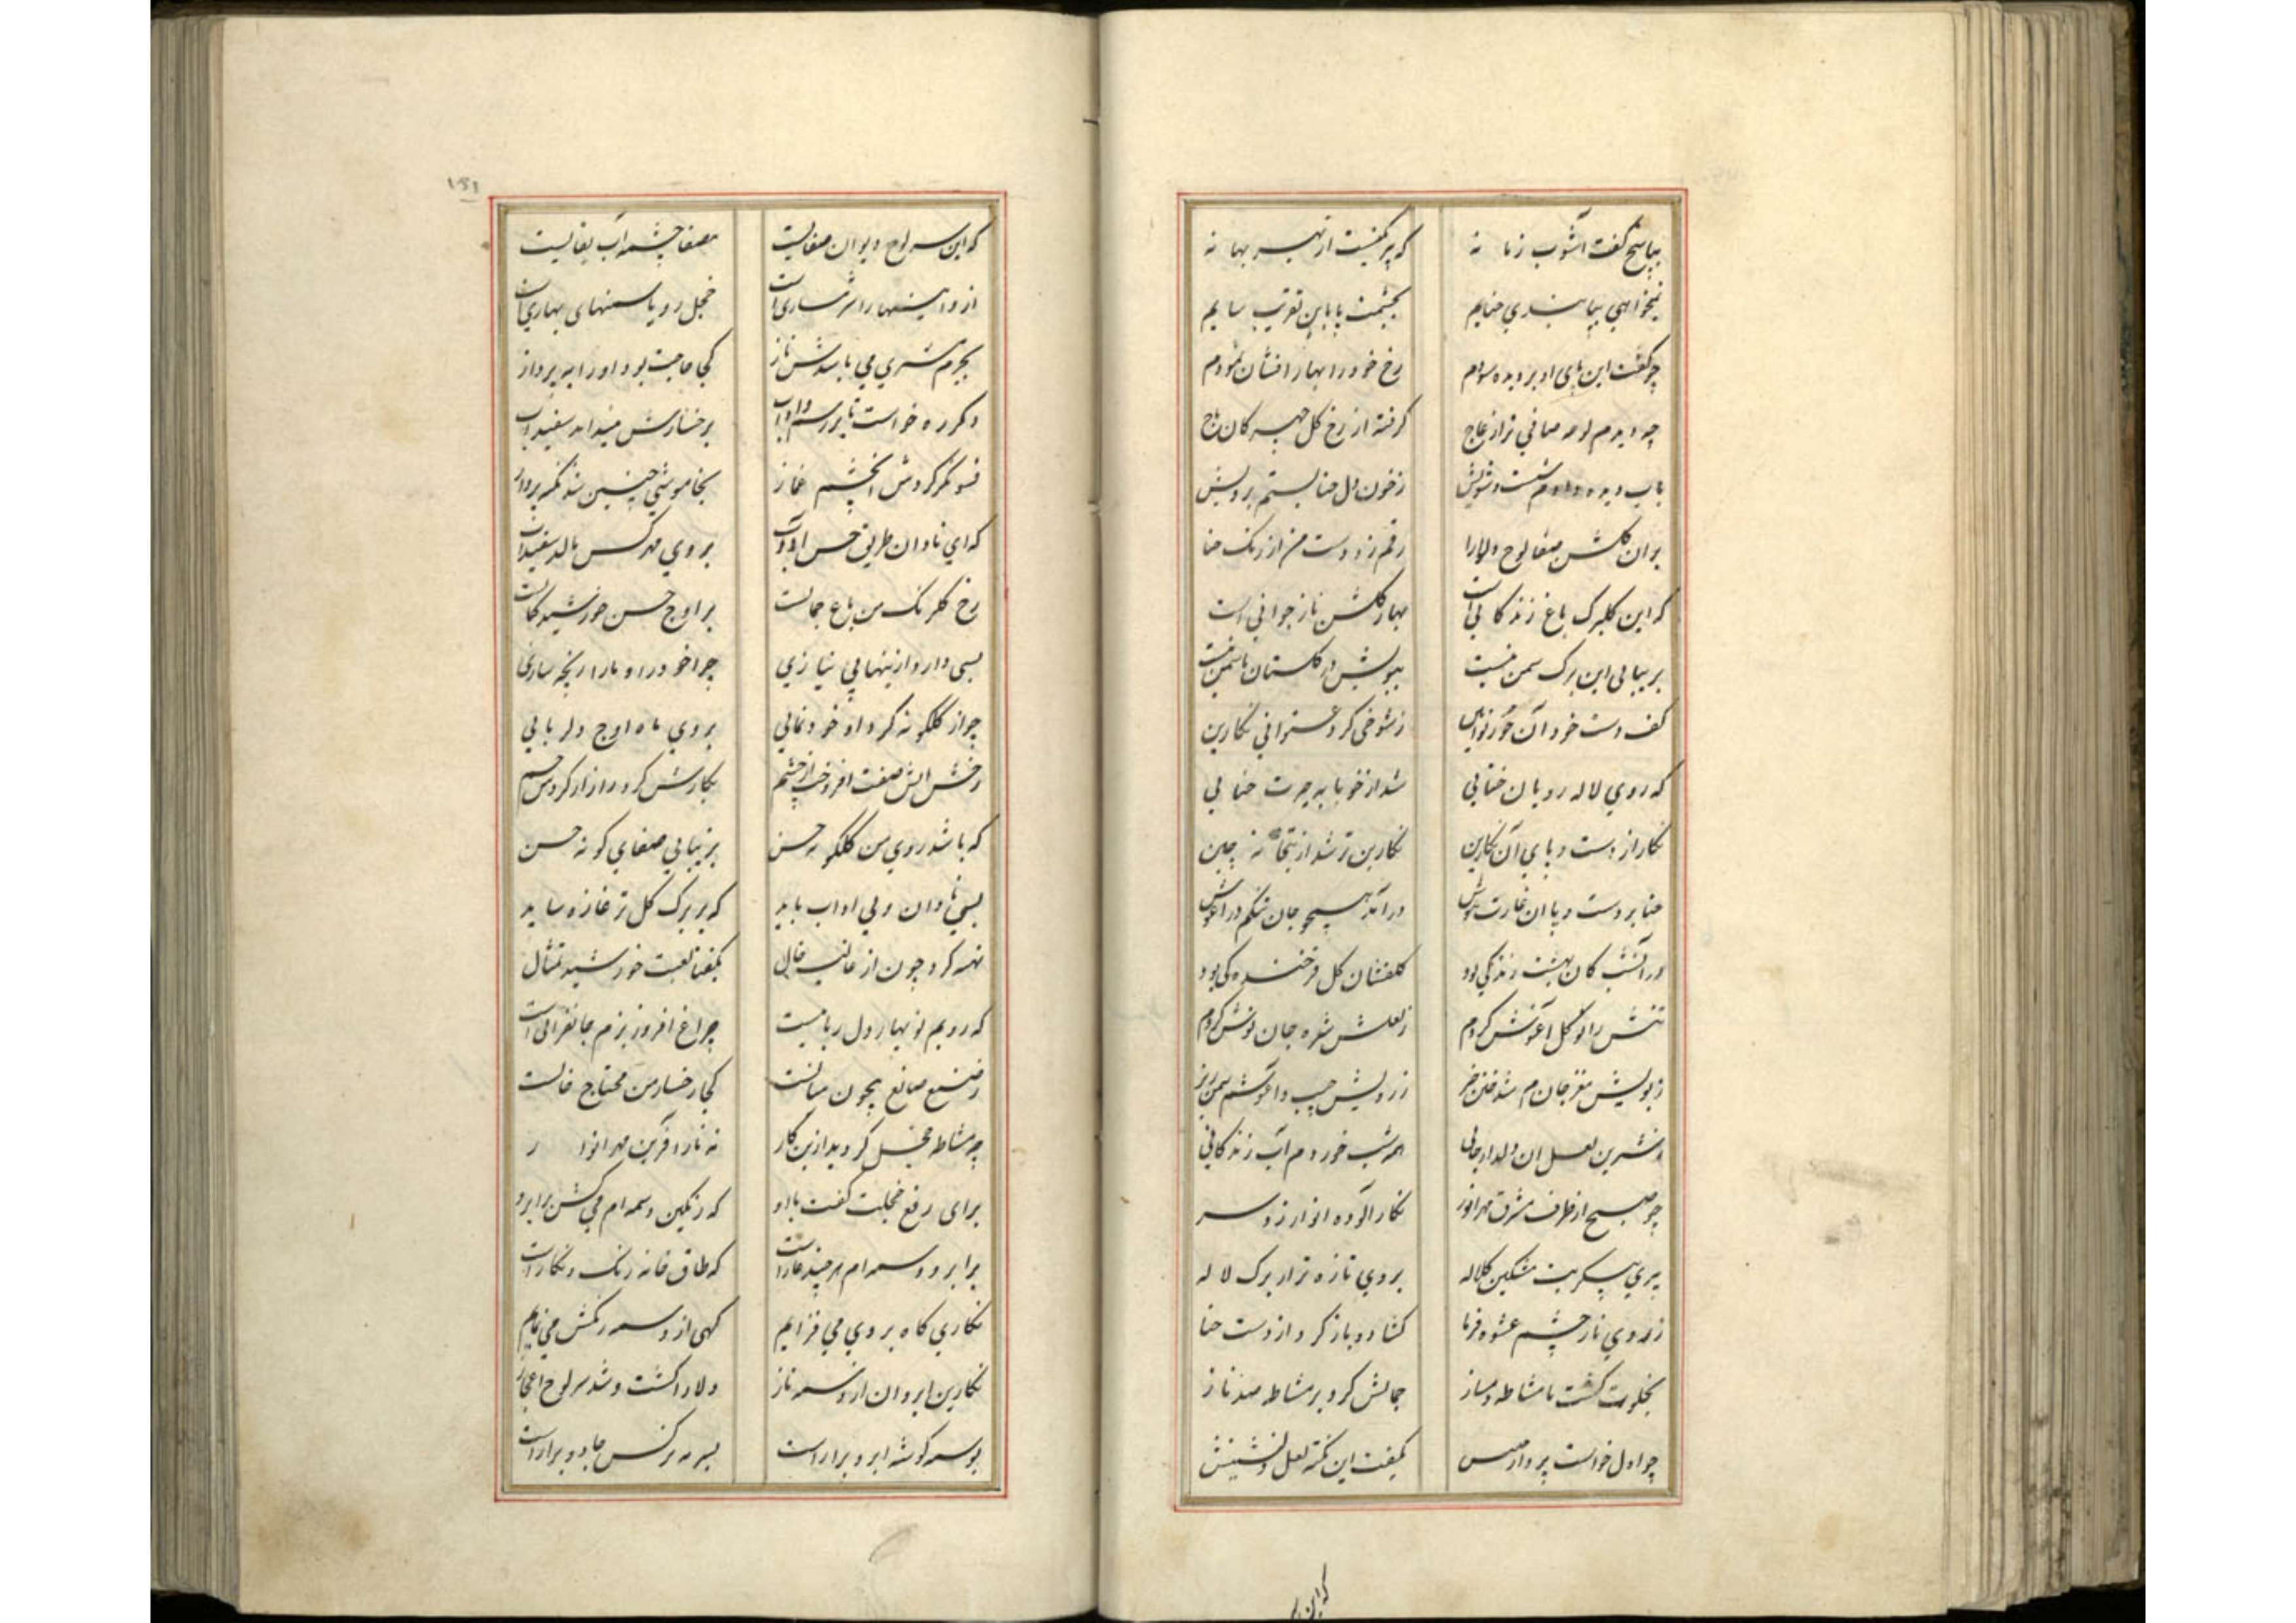 بپاسخ گفت آشوب زمانه که پر کیفیست از بهر بهانه
نیخواهی بپایت روی حنایم بچشمت پا باین تقریب سایم
چو گفت این پای او بر دیده سودم رخ خود را بهار افشان نمودم
چه دیدم لوحه صافی تر از عاج گرفته از رخ گل چهره کان باج
بآب دیده دادم شست و شویش ز خون دل حنا بستم برویش
بران گلشن صفا لوح دلارا رقم زد دست من از رنک حنا
که این گلبرک باغ زندگانی است بهار گلشن ناز جوانی است
بزیبایی این برک سمن نیست ببویش در گلستان یاسمن نیست
کف دست خود آن حور نوآیین ز شوخی کرد عنوانی نگارین
که روی لاله رویان ختایی شد از خونابه حیرت حنایی
نگار از دست و پای آن نگارین نگارین تر شد از بتخانه چین
حنا بر دست و پا آن غارت هوش درآمد همچو جان تنکم در آغوش
در آن شب کان بهشت زندگی بود گلفشان گل فرخندگی بود
تنش را نو گل آغوش کردم ز لعلش شیره جان نوش کردم
ز بویش مغز جانم شد ختن خیز ز رویش جیب و آغوشم سمن ریز
ز شیرین لعل آن دلدار جانی همه شب خوردم آب زندگانی
چو صبح از طرف مشرق مهر انور نگار آلوده انوار زد سر
پری پیکر بت مشکین کلاله بروی تازه تر از برک لاله
ز روی ناز چشم عشوه فرما گشاد و باز کرد از دست حنا
بخلوت گشت با مشاطه دمساز جمالش کرد بر مشاطه صد ناز
چو اول خواست پردازیس بگفت این نکته لعل دلنشینش
که این
۱۵۱
که این سرلوح دیوان صفاییست مصفا چشمه آب بقاییست
ازو آیینها را شرمساری است خجل رو یاسمنهای بهاری است
بجرم مشتری می باشدش ناز کجا حاجت بود او را به پرداز
دگر ره خواست تا بر رسم و آداب برخسارش فشاند سفیداب
فسونگر کردش آن چشم غماز بخاموشی چنین شد نکته پرداز
که ای نادان طریق حسن آداب بروی مهر کس مالد سفیداب
رخ گلرنک من باغ جمالست بر اوج حسن خورشید کمالست
بسی دارد ازینها بی نیازی چرا خود را و ما را رنجه سازی
چو از گلگونه کرد او خودنمایی بروی ماه اوج دلربایی
رخش آتش صفت افروخت از خشم نگارش کرد و راز از گردش چشم
که باشد روی من گلگونه حسن بزیبایی صفای گونه حسن
بسی نادان و بی آداب باید که بر برک گل تر غازه ساید
تهیه کرد چون از غالیه خال بگفتا لعبت خورشید تمثال
که رویم نوبهار دلرباییست چراغ افروز بزم جانفزایی است
ز صنع صانع بیچون مثالست کجا رخسار من محتاج خالست
چو مشاطه خجل گردید ازین کار نه ناز آفرین مهر انوار
برای رفع خجلت گفت با او که رنگین وسمه ام می کش بر ابرو
بر ابرو وسمه ام هر چند عار است که طاق خانه رنک و نگار است
نگاری گاه بر وی می فزایم گهی از وسمه رنگش می نمایم
نگارین ابروان از وسمه ناز دلارا گشت و شد سرلوح اعجاز
بوسمه گوشه ابرو بیاراست بسرمه نرگس جادو بیاراست